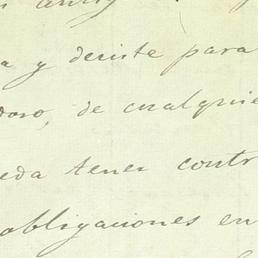 a y desiste para
doro, de cualquie
eda tener contr
obligaciones en